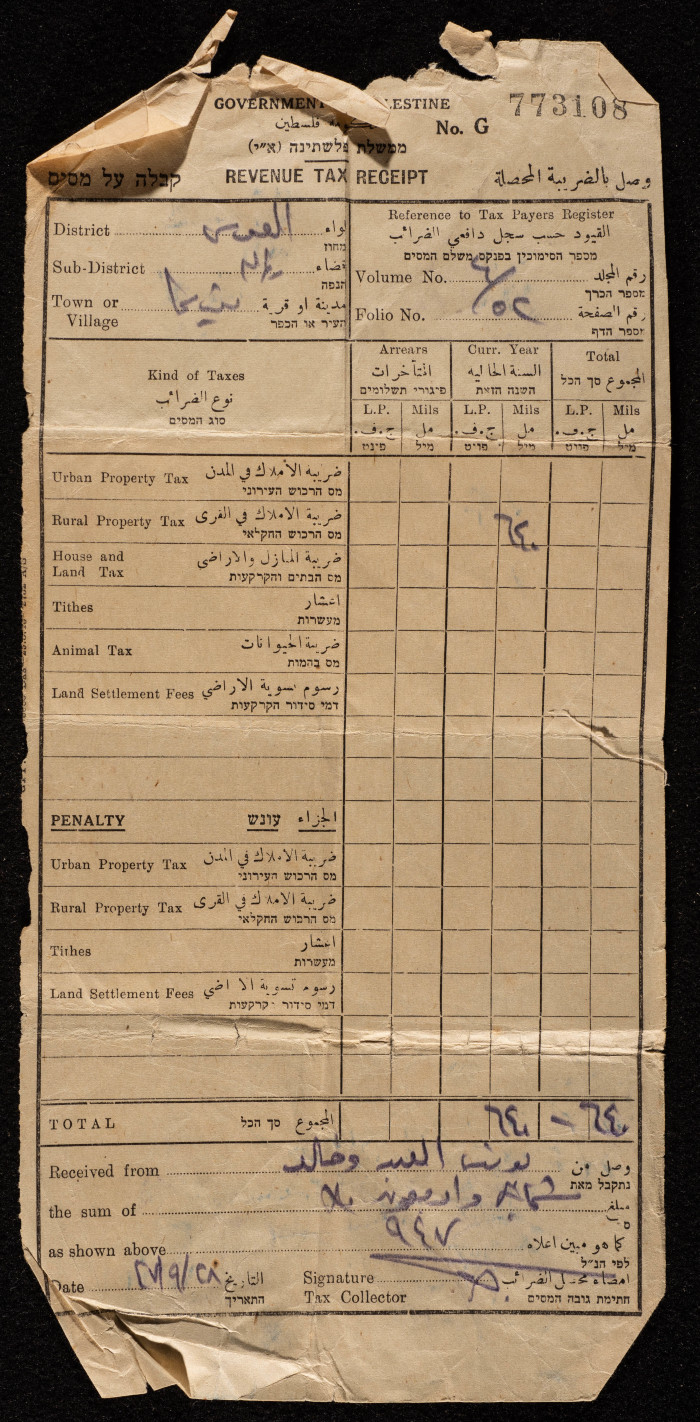 GOVERNMENT LESTINE
فلسطين
No. G 773108
ממשלת פלשתינה (א״י)
קבלה על מסים REVENUE TAX RECEIPT وصل بالضريبة المحصلة
District القدس لواء
מחוז
Sub-District قضاء
הנפה
Town or Village مدينة او قرية
העיר או הכפר
Reference to Tax Payers Register
القيود حسب سجل دافعي الضرائب
מספר הסימוכין בפנקס משלם המסים
Volume No. رقم المجلد
מספר הכרך
Folio No. ٥٢ رقم الصفحة
מספר הדף
Kind of Taxes
نوع الضرائب
סוג המסים
Arrears
المتأخرات
פיגורי תשלומים
Curr. Year
السنة الحالية
השנה הזאת
Total
المجموع סך הכל
L.P. Mils L.P. Mils L.P. Mils
ج.ف. مل ج.ف. مل ج.ف. مل
פונט מיל פונט מיל פונט מיל
Urban Property Tax ضريبة الأملاك في المدن
מס הרכוש העירוני
Rural Property Tax ضريبة الاملاك في القرى ٦٤٠
מס הרכוש החקלאי
House and Land Tax ضريبة المنازل والاراضي
מס הבתים והקרקעות
Tithes اعشار
מעשרות
Animal Tax ضريبة الحيوانات
מס בהמות
Land Settlement Fees رسوم تسوية الاراضي
דמי סידור הקרקעות
PENALTY עונש الجزاء
Urban Property Tax ضريبة الاملاك في المدن
מס הרכוש העירוני
Rural Property Tax ضريبة الاملاك في القرى
מס הרכוש החקלאי
Tithes اعشار
מעשרות
Land Settlement Fees رسوم تسوية الاراضي
דמי סידור קרקעות
TOTAL סך הכל المجموع ٦٤٠ — ٦٤٠
Received from وصل من
נתקבל מאת
the sum of واربعون مبلغ
as shown above ٩٤٧ كما هو مبين اعلاه
לפי הנ״ל
Date التاريخ
התאריך
Signature Tax Collector امضاء محصل الضرائب
חתימת גובה המסים